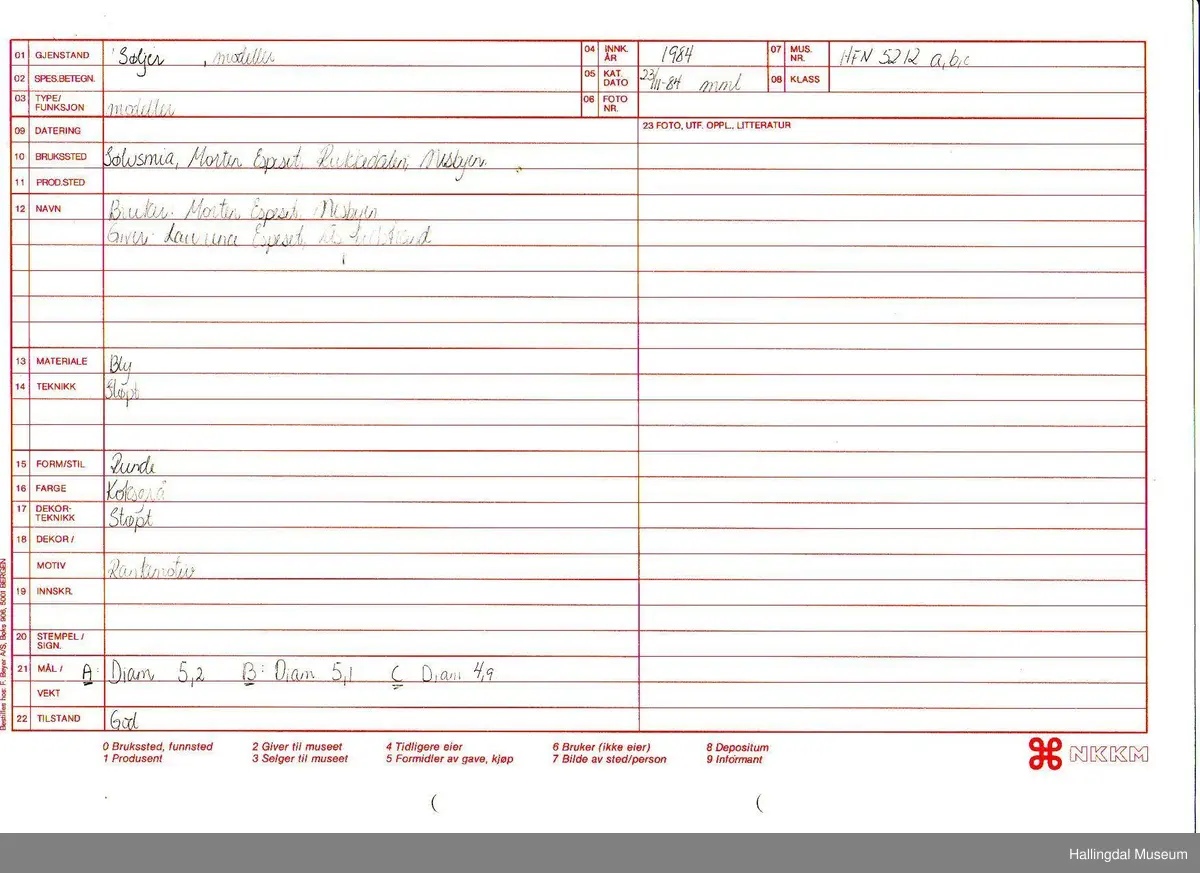 01 GJENSTAND Søljer , modeller 04 INNK. ÅR 1984 07 MUS. NR. HFN 5212 a,b,c
02 SPES.BETEGN. 05 KAT. DATO 23/11-84 mml 08 KLASS
03 TYPE/ FUNKSJON modeller 06 FOTO NR.
09 DATERING 23 FOTO, UTF. OPPL., LITTERATUR
10 BRUKSSTED Sølvsmia, Morten Espeset, Rukkedalen, Nesbyen.
11 PROD.STED
12 NAVN Bruker: Morten Espeset, Nesbyen
Giver: Espeset,
13 MATERIALE Bly
14 TEKNIKK Støpt
15 FORM/STIL Runde
16 FARGE Koksgrå
17 DEKOR- TEKNIKK Støpt
18 DEKOR /
MOTIV Rankmotiv
19 INNSKR.
20 STEMPEL / SIGN.
21 MÅL / A: Diam 5,2 B: Diam 5,1 C Diam 4,9
VEKT
22 TILSTAND God
0 Brukssted, funnsted 2 Giver til museet 4 Tidligere eier 6 Bruker (ikke eier) 8 Depositum
1 Produsent 3 Selger til museet 5 Formidler av gave, kjøp 7 Bilde av sted/person 9 Informant
NKKM
Bestilles hos: F. Beyer A/S, Boks 906, 5001 BERGEN
Hallingdal Museum